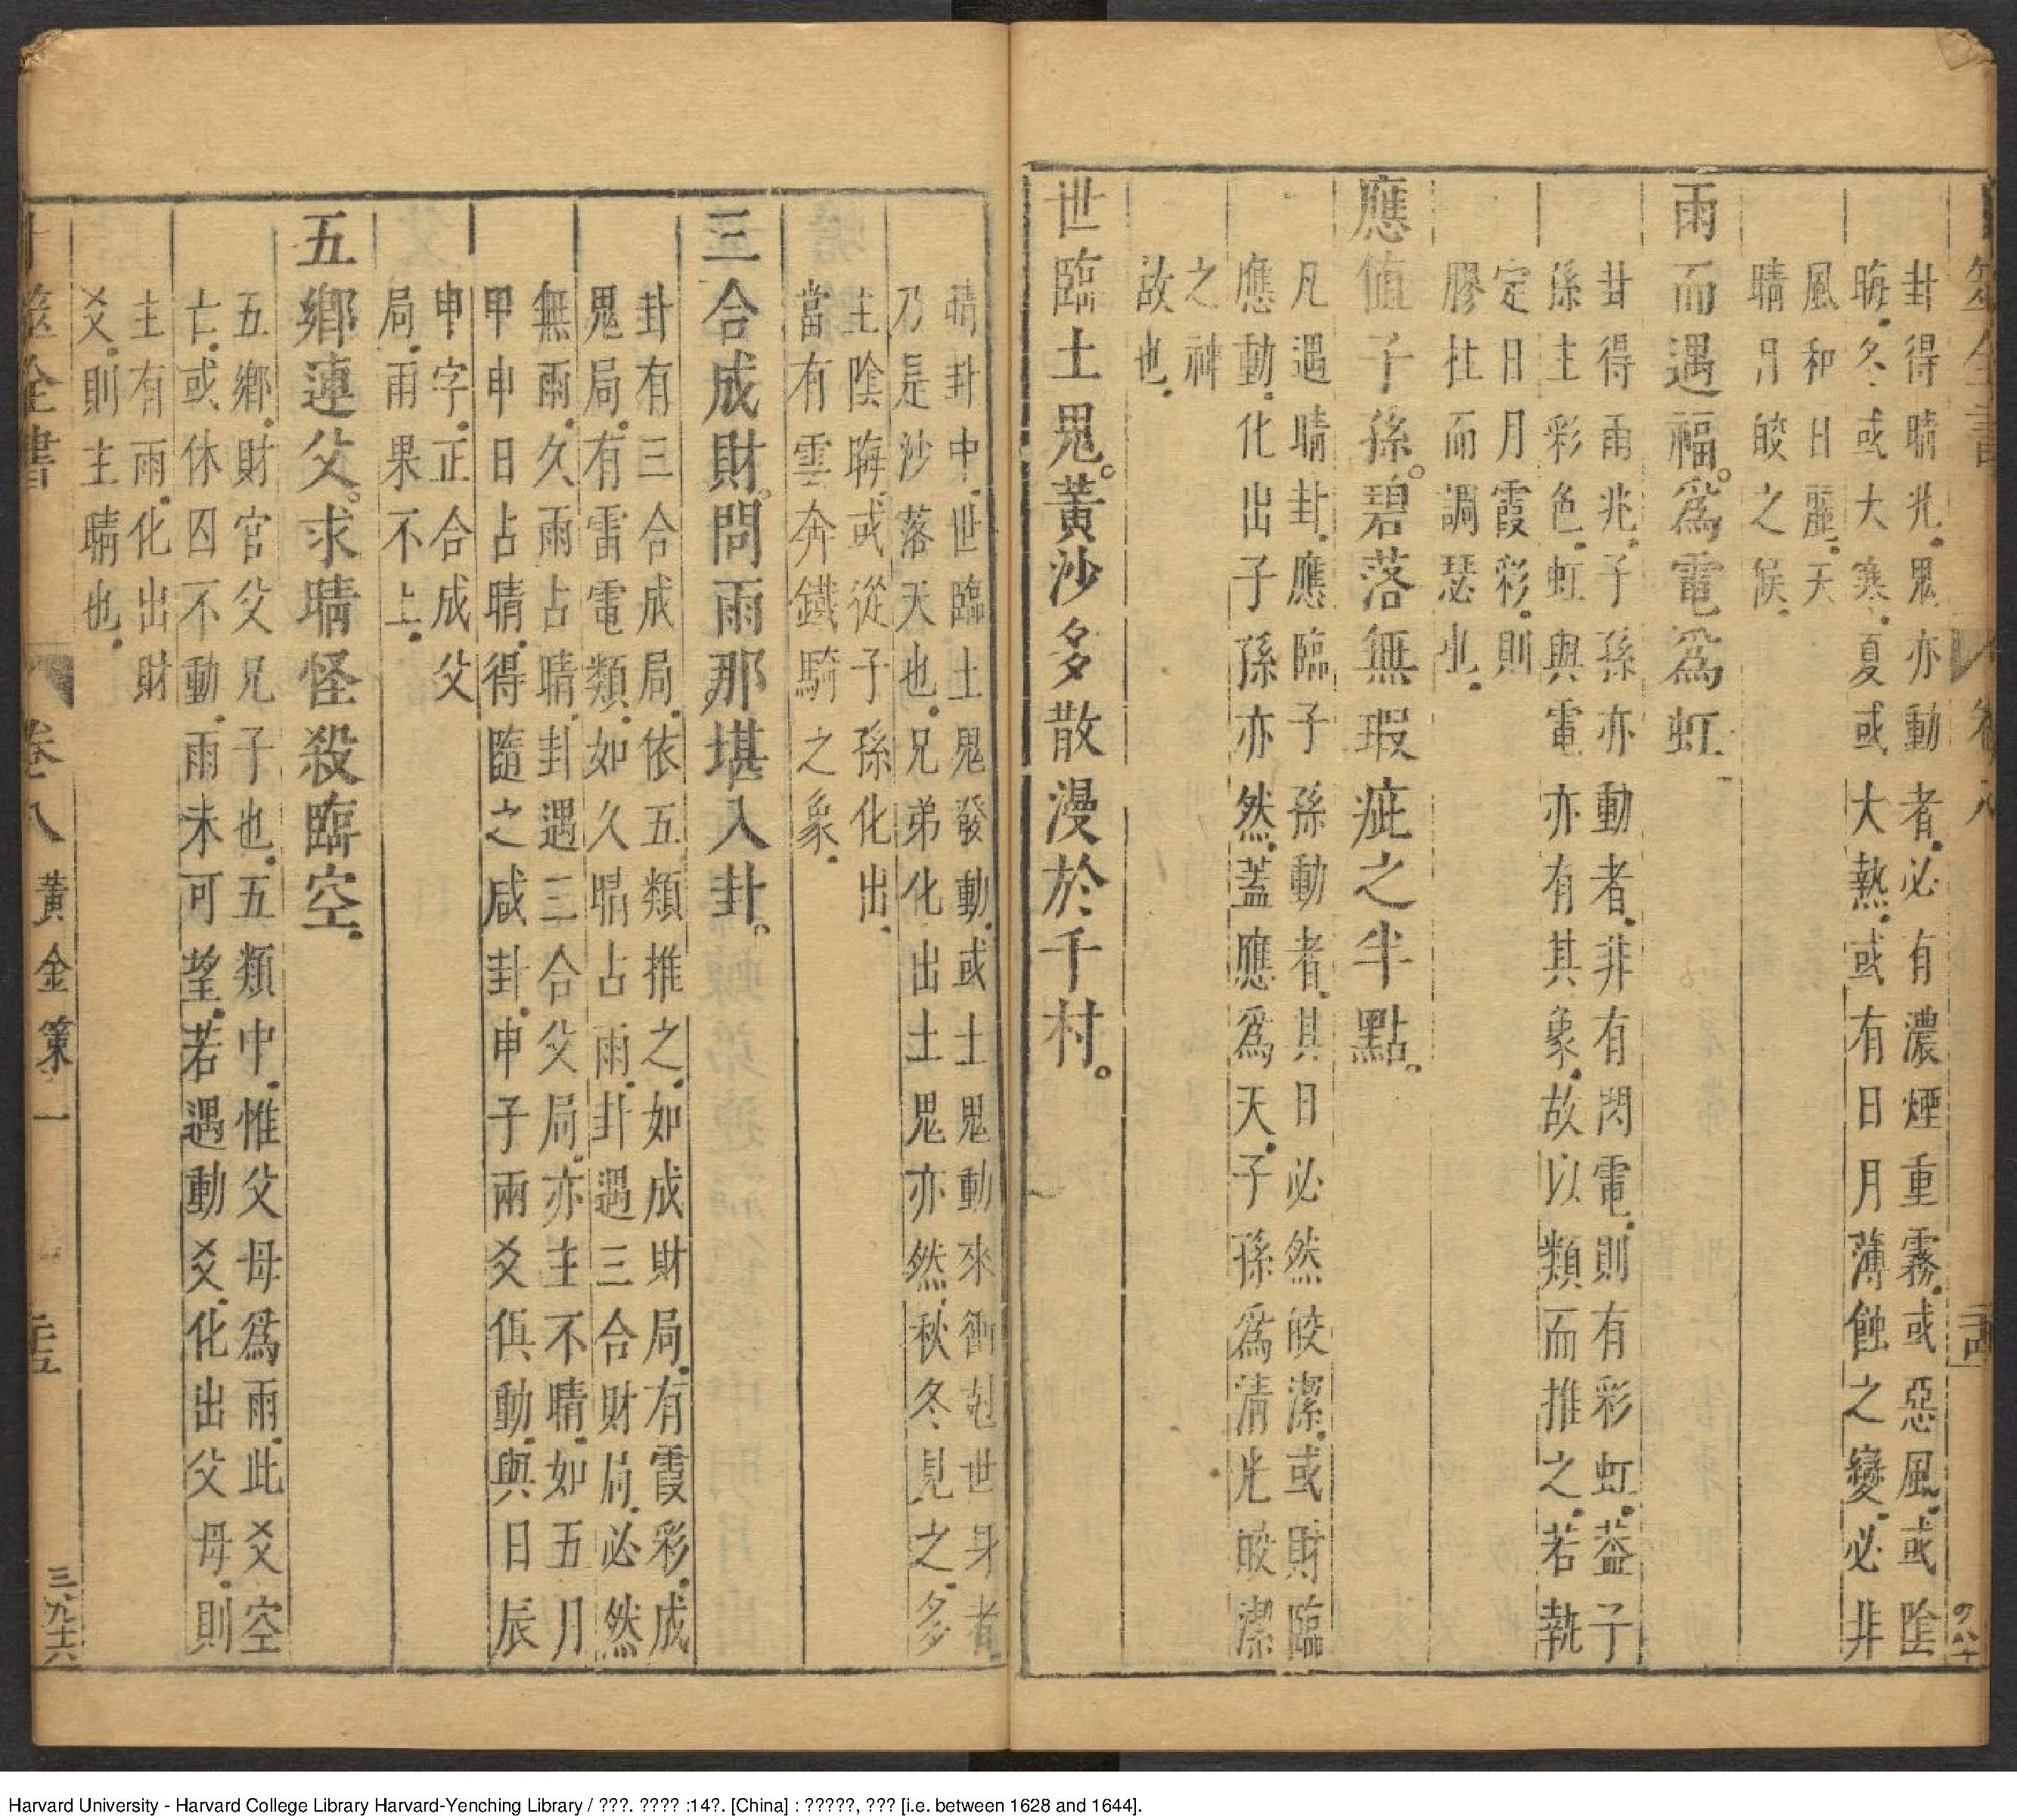 卦得晴兆鬼亦動者必有濃煙重霧或惡風或陰
晦冬或大寒夏或大熱或有日月薄蝕之變必非
風和日麗天
晴月皎之候
雨而遇福爲電爲虹
卦得雨兆子孫亦動者非有閃電則有彩虹葢子
孫主彩色虹與電亦有其象故以類而推之若執
定日月霞彩則
膠柱而調瑟也
應値子孫碧落無瑕疵之半點
凡遇晴卦應臨子孫動者其日必然皎潔或財臨
應動化出子孫亦然蓋應爲天子孫爲淸光皎潔
之神
故也
世臨土鬼黃沙多散漫於千村
晴卦中世臨土鬼發動或土鬼動來衝剋世身者
乃是沙落天也兄弟化出土鬼亦然秋冬見之多
主陰晦或從子孫化出
當有雲奔鐵騎之象
三合成財問雨那堪入卦
卦有三合成局依五類推之如成財局有霞彩成
鬼局有雷電類如久晴占雨卦遇三合財局必然
無雨久雨占晴卦遇三合父局亦主不晴如五月
甲申日占晴得隨之咸卦申子兩爻俱動與日辰
申字正合成父
局雨果不上
五鄉連父求晴怪殺臨空
五鄉財官父兄子也五類中惟父母爲雨此爻空
亡或休囚不動雨未可望若遇動爻化出父母則
主有雨化出財
爻則主晴也
卜筮全書
卷八
黃金策一
三九十六
Harvard University - Harvard College Library Harvard-Yenching Library / ???. ???? :14?. [China] : ?????, ??? [i.e. between 1628 and 1644].